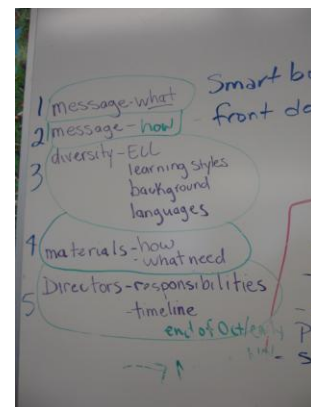 1 message-what
2 message-how
3 diversity-ELL
learning styles
background
languages
4 materials-how
-what need
5 Directors-responsibilities
-timeline
end of Oct/early
Smart
front